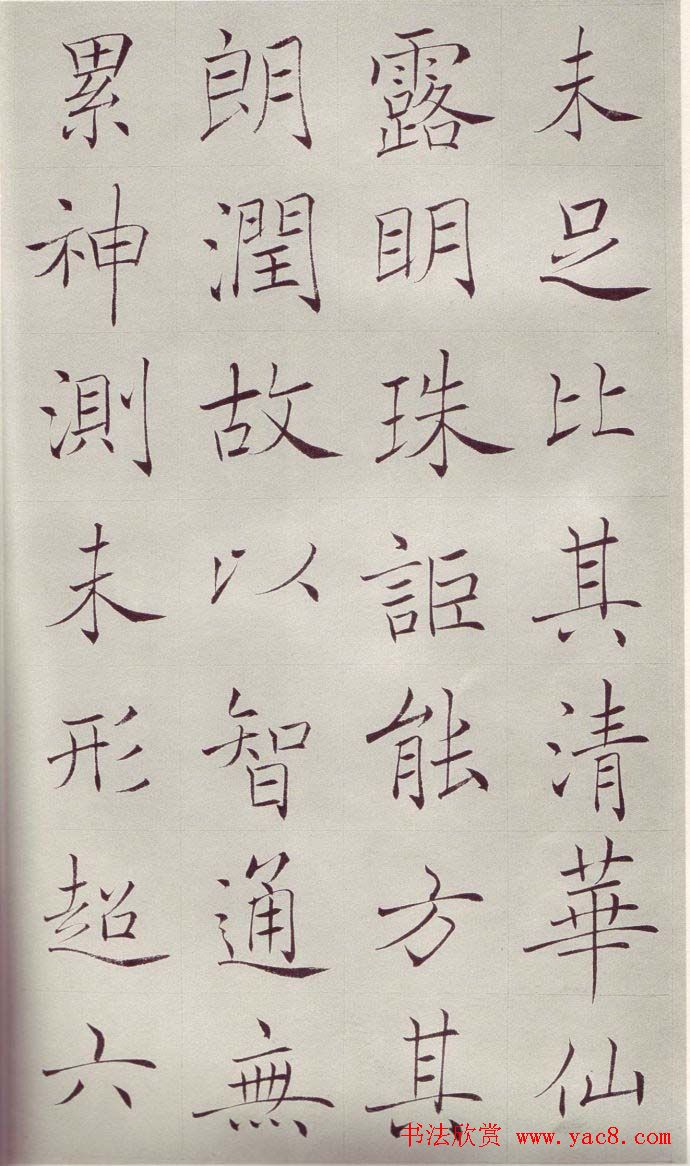 未足比其清華仙
露明珠詎能方其
朗潤故以智通無
累神測未形超六
书法欣赏 www.yac8.com